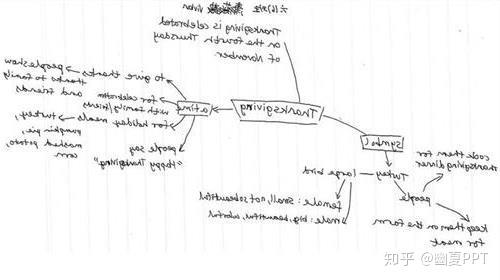 Thanksgiving is celebrated
on the fourth Thursday
of November
Thanksgiving
a time
to give thanks
people show
thanks to family
and friends
for celebration
with family/friends
for holiday meals
turkey,
pumpkin pie,
mashed potato,
corn
people say
"Happy Thanksgiving"
Symbol
Turkey
large bird
female: small, not so beautiful
male: big, beautiful, colorful
people
cook them for
thanksgiving dinner
keep them on the farm
for meat
知乎 @幽夏PPT